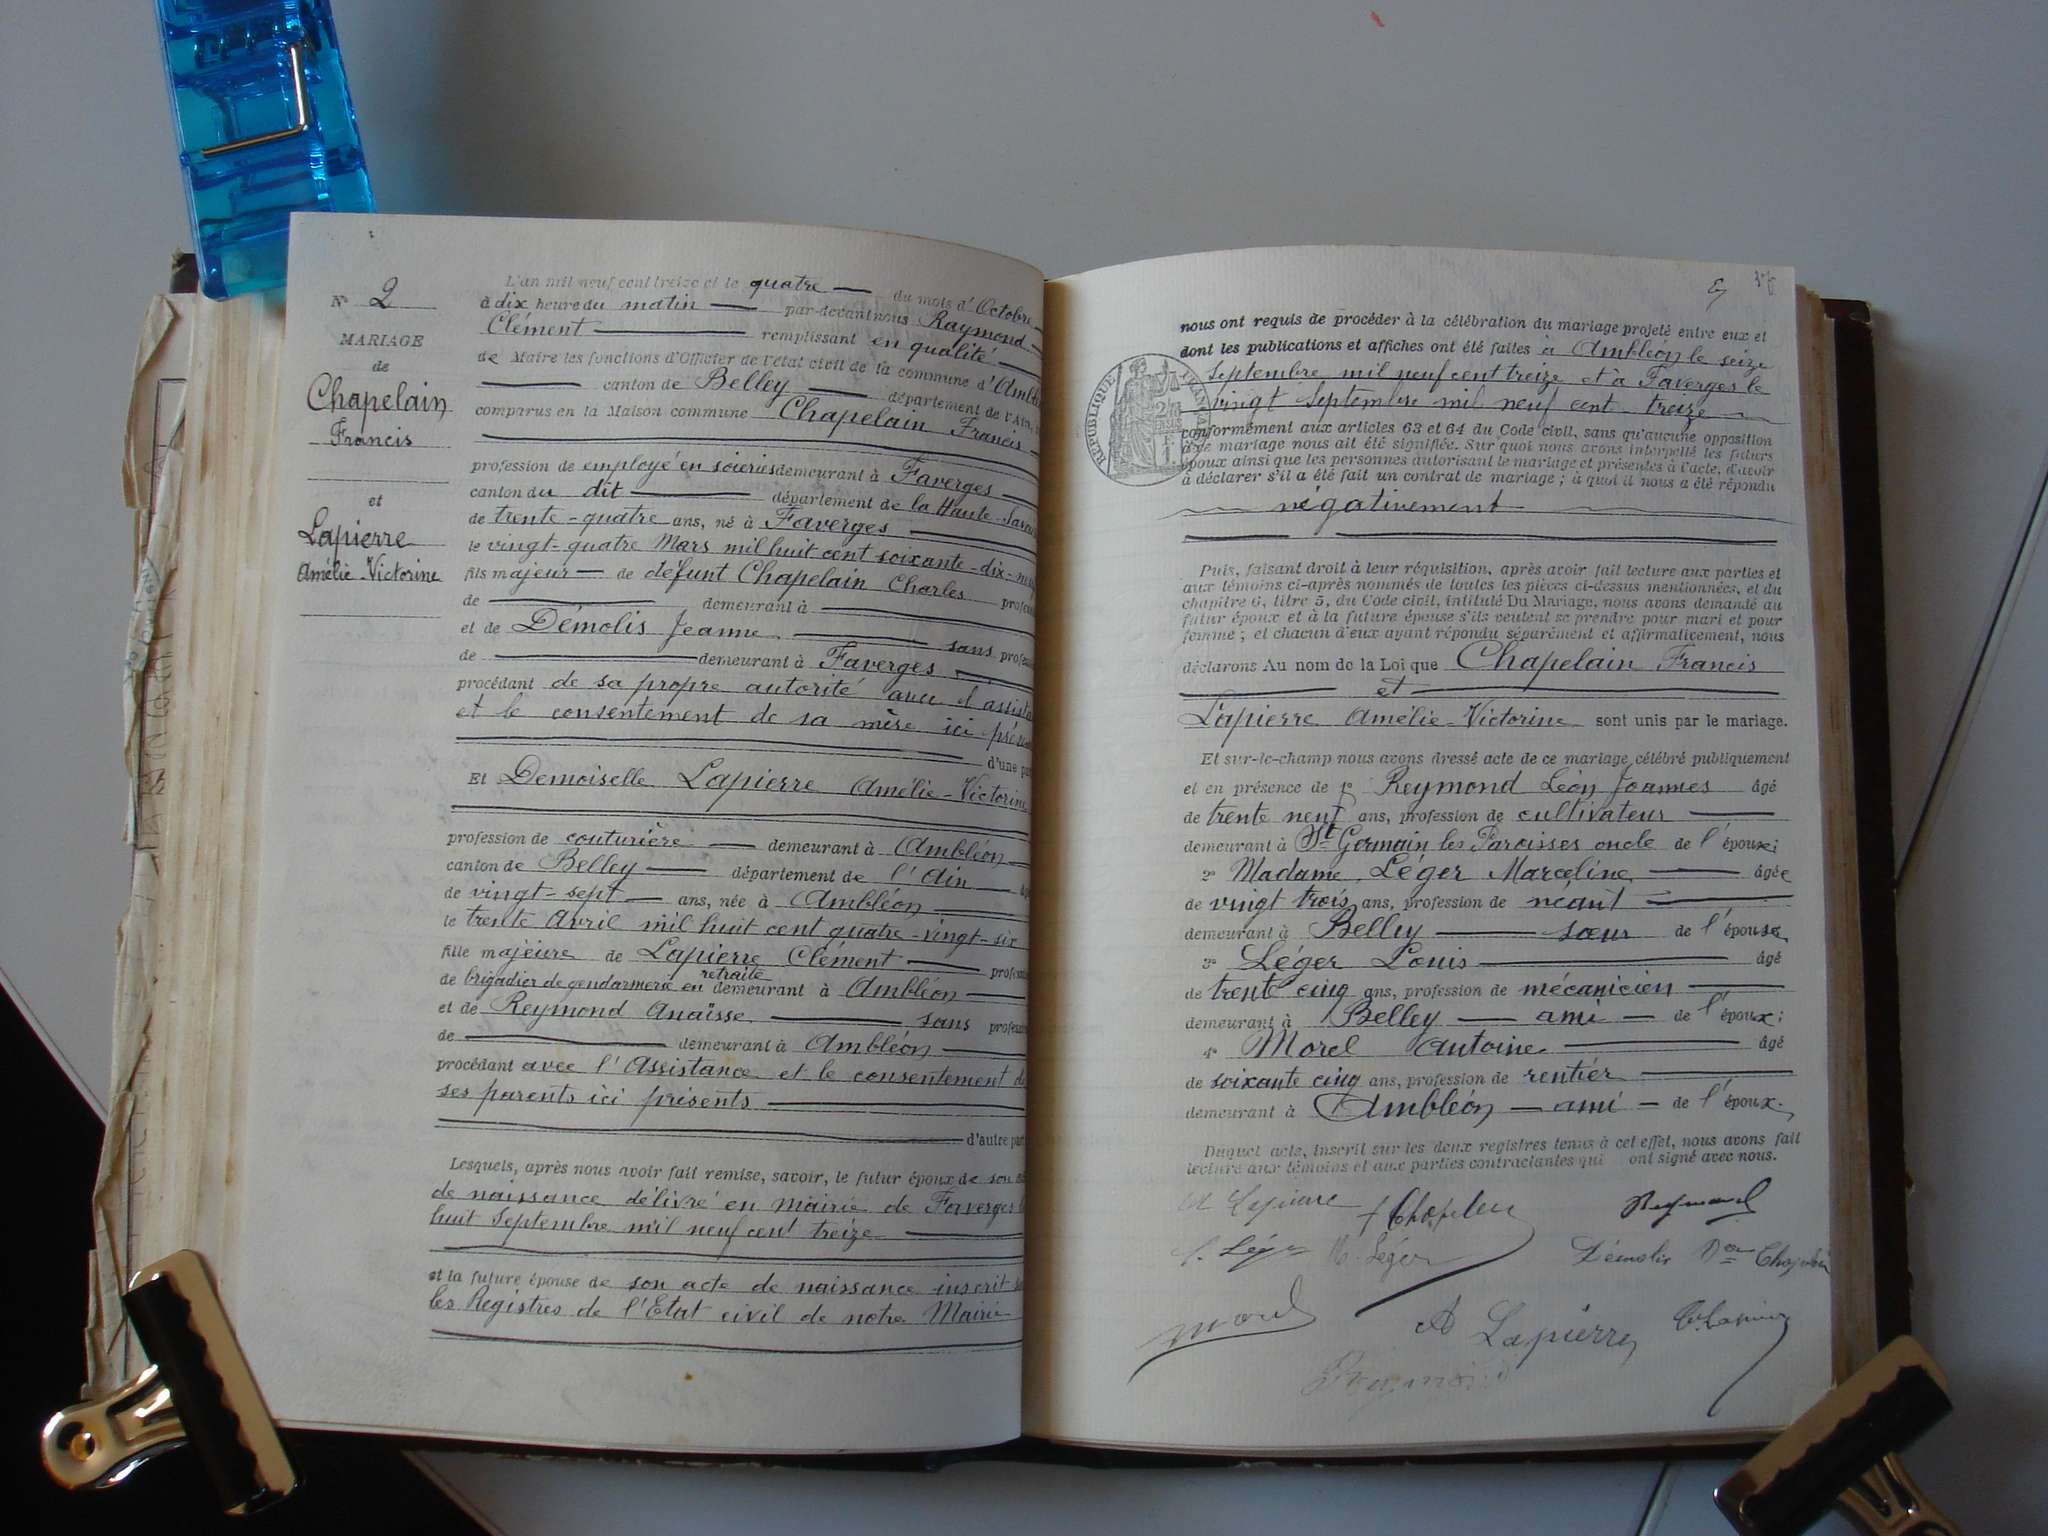 Nº 2
MARIAGE
de
Chapelain
Francis
et
Lapierre
Amélie-Victorine
L'an mil neuf cent treize et le quatre du mois d'Octobre
à dix heure du matin par-devant nous Raymond
Clément remplissant en qualité
de Maire les fonctions d'Officier de l'état civil de la commune d'Ambl
canton de Belley département de l'Ain,
comparus en la Maison commune Chapelain Francis
profession de employé en soieries demeurant à Faverges
canton du dit département de la Haute-Savoie
de trente-quatre ans, né à Faverges
le vingt-quatre Mars mil huit cent soixante-dix-neuf
fils majeur de défunt Chapelain Charles profes
de demeurant à
et de Démolis Jeanne sans profes
de demeurant à Faverges
procédant de sa propre autorité avec l'assista
et le consentement de sa mère ici prése
d'une par
Et Demoiselle Lapierre Amélie-Victorine
profession de couturière demeurant à Ambléon
canton de Belley département de l'Ain âgé
de vingt-sept ans, née à Ambléon
le trente Avril mil huit cent quatre-vingt-six
fille majeure de Lapierre Clément profess
de brigadier de gendarmerie en retraite demeurant à Ambléon
et de Reymond Anaïsse sans profess
de demeurant à Ambléon
procédant avec l'Assistance et le consentement de
ses parents ici présents
d'autre part
Lesquels, après nous avoir fait remise, savoir, le futur époux de son
de naissance délivré en Mairie de Faverges le
huit Septembre mil neuf cent treize
et la future épouse de son acte de naissance inscrit s
les Registres de l'Etat civil de notre Mairie
nous ont requis de procéder à la célébration du mariage projeté entre eux et
dont les publications et affiches ont été faites à Ambléon le seize
Septembre mil neuf cent treize et à Faverges le
vingt Septembre mil neuf cent treize
conformément aux articles 63 et 64 du Code civil, sans qu'aucune opposition
à ce mariage nous ait été signifiée. Sur quoi nous avons interpellé les futurs
époux ainsi que les personnes autorisant le mariage et présentes à l'acte, d'avoir
à déclarer s'il a été fait un contrat de mariage ; à quoi il nous a été répondu
négativement
RÉPUBLIQUE FRANÇAISE
Puis, faisant droit à leur réquisition, après avoir fait lecture aux parties et
aux témoins ci-après nommés de toutes les pièces ci-dessus mentionnées, et du
chapitre 6, titre 5, du Code civil, intitulé Du Mariage, nous avons demandé au
futur époux et à la future épouse s'ils veulent se prendre pour mari et pour
femme ; et chacun d'eux ayant répondu séparément et affirmativement, nous
déclarons Au nom de la Loi que Chapelain Francis
et
Lapierre Amélie-Victorine sont unis par le mariage.
Et sur-le-champ nous avons dressé acte de ce mariage célébré publiquement
et en présence de 1º Reymond Léon Joannes âgé
de trente neuf ans, profession de cultivateur
demeurant à St Germain les Paroisses oncle de l'épouse;
2º Madame Léger Marceline âgée
de vingt trois ans, profession de néant
demeurant à Belley sœur de l'épouse
3º Léger Louis âgé
de trent cinq ans, profession de mécanicien
demeurant à Belley ami de l'époux;
4º Morel Antoine âgé
de soixante cinq ans, profession de rentier
demeurant à Ambléon ami de l'époux.
Duquel acte, inscrit sur les deux registres tenus à cet effet, nous avons fait
lecture aux témoins et aux parties contractantes qui ont signé avec nous.
Lapierre Reymond
M. Léger Démolis Chapelain
Morel A Lapierre
Reymond